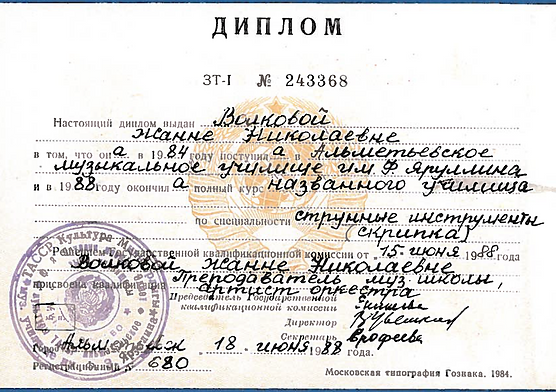 ДИПЛОМ
ЗТ-I № 243368
Настоящий диплом выдан Волковой
Жанне Николаевне
в том, что она в 1984 году поступила в Альметьевское
музыкальное училище им Ф Яруллина
и в 1988 году окончила полный курс названного училища
по специальности струнные инструменты
(скрипка)
Решением Государственной квалификационной комиссии от 15 июня 1988 г.
Волковой Жанне Николаевне
присвоена квалификация Преподаватель муз. школы,
артист оркестра
Председатель Государственной
квалификационной комиссии
Директор
Секретарь Ерофеева
Город Альметьевск 18 июня 1988 года.
Регистрационный № 680
Московская типография Гознака. 1984.